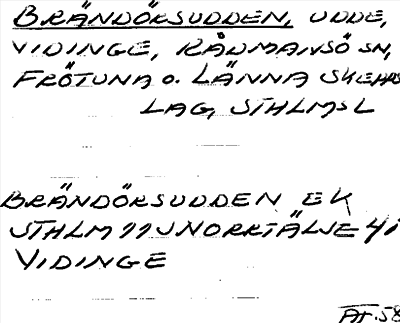 BRÄNDÖRSUDDEN, UDDE,
VIDINGE, RÅDMANSÖ SN,
FRÖTUNA O. LÄNNA SKEPPS
LAG, STHLMSL
BRÄNDÖRSUDDEN EK
STHLM 11J NORRTÄLJE 4i
VIDINGE
AF.58